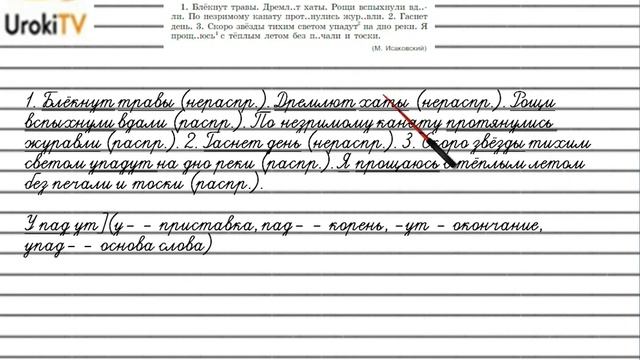 UrokiTV
1. Блёкнут травы. Дремл..т хаты. Рощи вспыхнули вд..-
ли. По незримому канату прот..нулись жур..вли. 2. Гаснет
день. 3. Скоро звёзды тихим светом упадут² на дно реки. Я
прощ..юсь⁴ с тёплым летом без п..чали и тоски.
(М. Исаковский)
1. Блёкнут травы (нераспр.). Дремлют хаты (нераспр.). Рощи
вспыхнули вдали (распр.). По незримому канату протянулись
журавли (распр.). 2. Гаснет день (нераспр.). 3. Скоро звёзды тихим
светом упадут на дно реки (распр.). Я прощаюсь с тёплым летом
без печали и тоски (распр.).
У пад ут ](у- - приставка, пад- - корень, -ут - окончание,
упад- - основа слова)